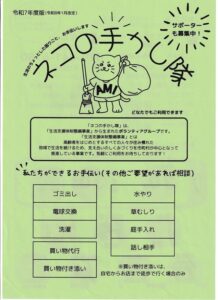 令和7年度版(令和8年1月改定)
生活のちょっとした困りごと、お手伝いします
サポーター
も募集中!
ネコの手かし隊
AMI
どなたでもご利用できます
「ネコの手かし隊」は、
「生活支援体制整備事業」から生まれたボランティアグループです。
「生活支援体制整備事業」とは
高齢者をはじめとするすべての人々が住み慣れた
地域で生活を続けるため、支え合いのしくみづくりを市町村が中心となって
推進している事業です。気軽にご利用をお待ちしております!
私たちができるお手伝い(その他ご要望があれば相談)
ゴミ出し
水やり
電球交換
草むしり
洗濯
庭手入れ
買い物代行
話し相手
買い物付き添い
※買い物付き添いは、
自宅からお店まで徒歩で行く場合のみ